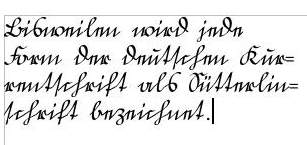 Bisweilen wird jede
Form der deutschen Kur=
rentschrift als Sütterlin=
schrift bezeichnet.